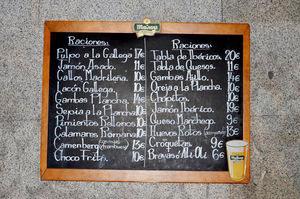 Mahou
Raciones:
Pulpo a la Gallega 17€
Jamón Asado 11€
Callos Madrileña 10€
Lacón Gallega 10€
Gambas Plancha 14€
Sepia a la Plancha
Pimientos Rellenos 10€
Calamares Romana 10€
Camembert 13€
Choco Frito 10€
Raciones:
Tabla de Ibéricos 20€
Tabla de Quesos 11€
Gambas Ajillo 14€
Oreja a la Plancha
Chopitos
Jamón Ibérico 19€
Queso Manchego 9€
Huevos Rotos
Croquetas 9€
Bravas ó Ali Oli 6€